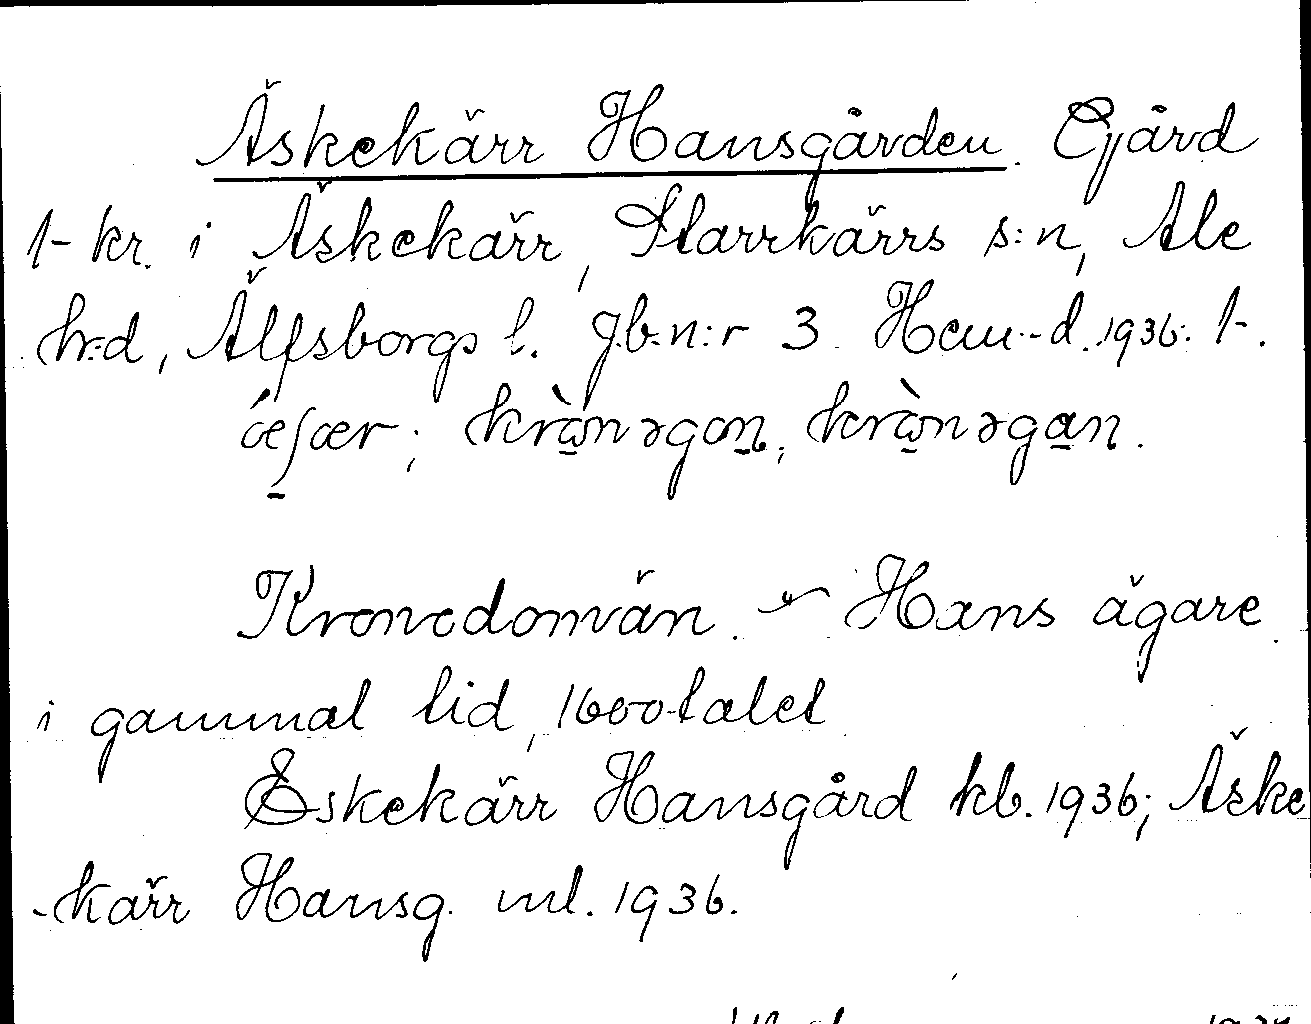 Äskekärr Hansgården. Gård
1- kr. i Äskekärr, Starrkärrs s:n, Ale
h:d, Älfsborgs l. Jb.n:r 3. Hem.-d. 1936: 1-.
krà̱nəga̱n.
Kronodomän. Hans ägare
i gammal tid, 1600-talet
Eskekärr Hansgård kb. 1936; Äske
-kärr Hansg. ml. 1936.